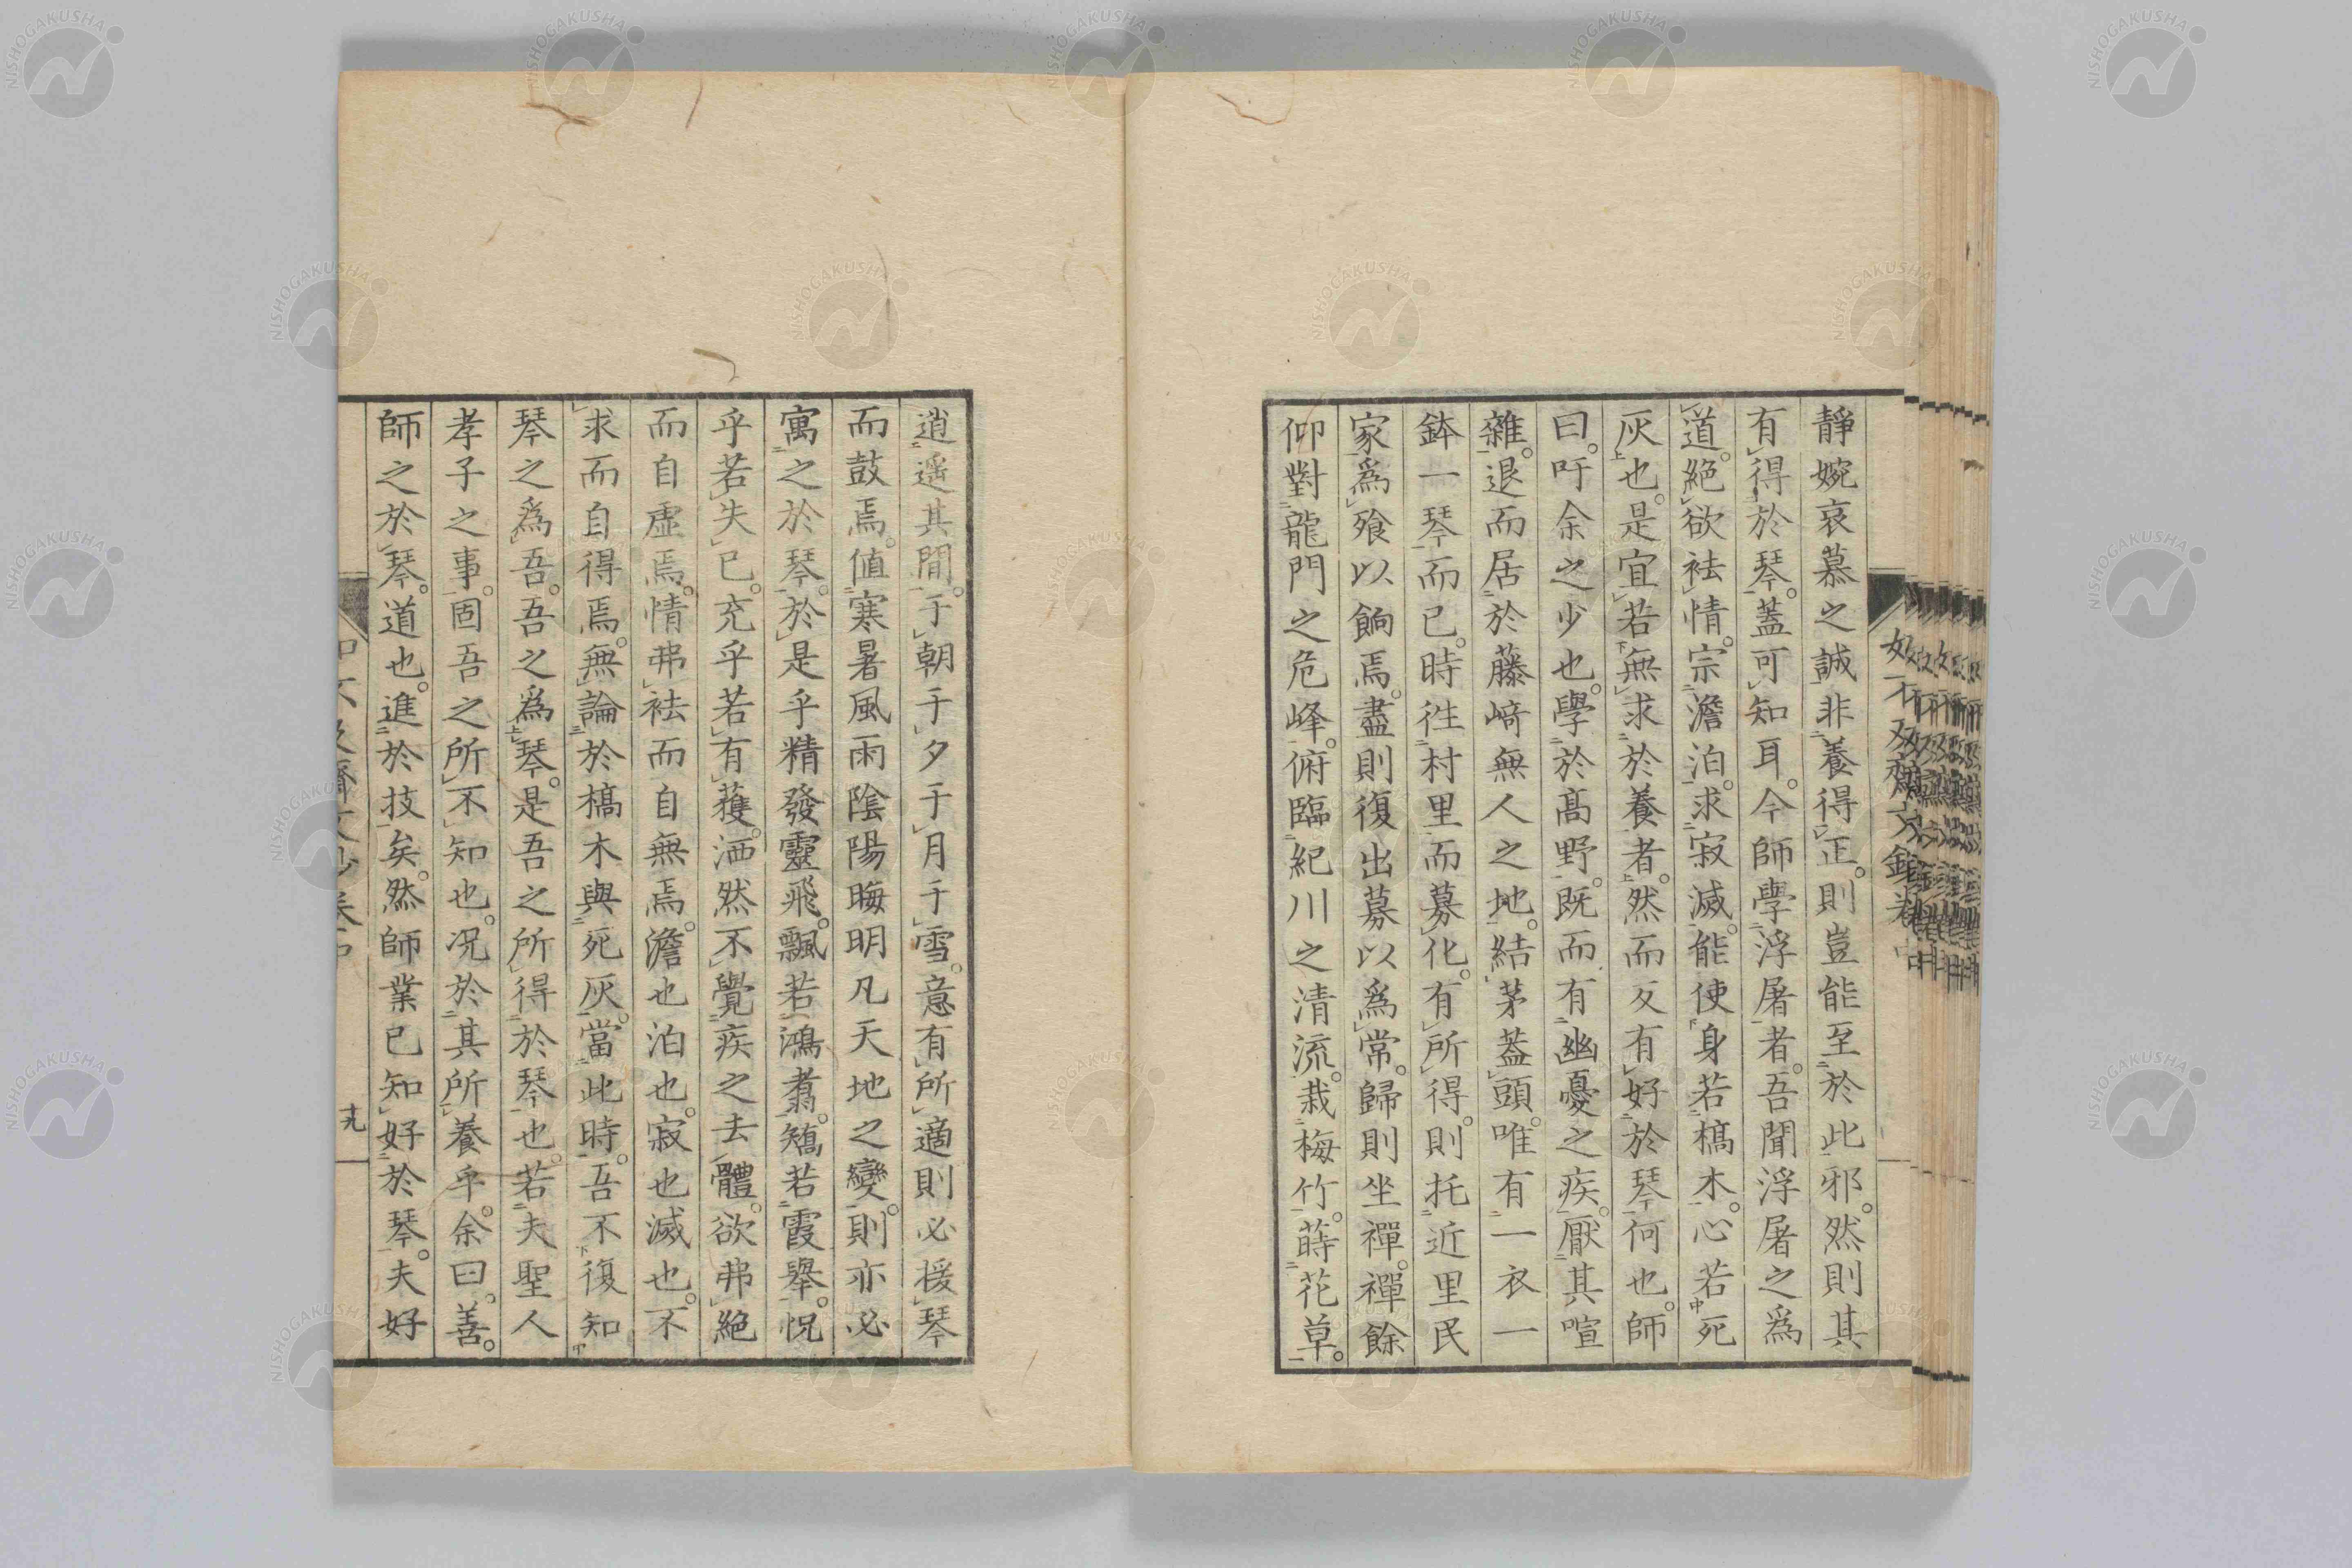 靜婉哀慕之誠非養得正。則豈能至於此邪。然則其
有得於琴。蓋可知耳。今師學浮屠者。吾聞浮屠之爲
道。絕欲袪情。宗澹泊。求寂滅。能使身若槁木。心若死
灰也。是宜若無求於養者。然而又有好於琴何也。師
曰。吁余之少也。學於髙野。既而有幽憂之疾。厭其喧
雜。退而居於藤﨑無人之地。結茅蓋頭。唯有一衣一
鉢一琴而已。時徃村里而募化。有所得。則托近里民
家爲飱以餉焉。盡則復出募以爲常。歸則坐禪。禪餘
仰對龍門之危峰。俯臨紀川之清流。栽梅竹。蒔花草。
逍遥其間。于朝于夕于月于雪。意有所適則必援琴
而鼓焉。値寒暑風雨陰陽晦明凡天地之變。則亦必
寓之於琴。於是乎精發靈飛。飄若鴻翥。矯若霞舉。怳
乎若失已。充乎若有獲。洒然不覺疾之去體。欲弗絕
而自虛焉。情弗袪而自無焉。澹也泊也。寂也滅也。不
求而自得焉。無論於槁木與死灰。當此時。吾不復知
琴之爲吾。吾之爲琴。是吾之所得於琴也。若夫聖人
孝子之事。固吾之所不知也。况於其所養乎。余曰。善。
師之於琴。道也。進於技矣。然師業已知好於琴。夫好
十九
NISHOGAKUSHA